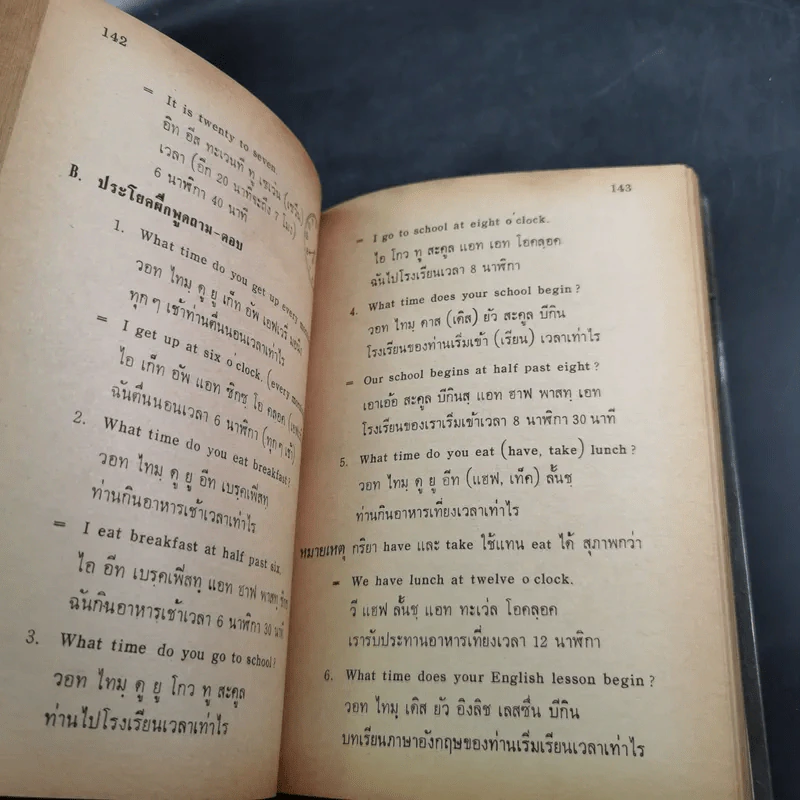 142
= It is twenty to seven.
อิท อีส ทะเวนที ทู เซเว่น (เซวึ่น)
เวลา (อีก 20 นาทีจะถึง 7 โมง)
6 นาฬิกา 40 นาที
B. ประโยคฝึกพูดถาม-ตอบ
1. What time do you get up every
วอท ไทมฺ ดู ยู เก็ท อัพ เอฟเวรี่
ทุกๆ เช้าท่านตื่นนอนเวลาเท่าไร
= I get up at six o'clock. (every
ไอ เก็ท อัพ แอท ซิกซฺ โอ คลอค
ฉันตื่นนอนเวลา 6 นาฬิกา (ทุกๆ เช้า)
2. What time do you eat breakfast?
วอท ไทมฺ ดู ยู อีท เบรคเฟิสทฺ
ท่านกินอาหารเช้าเวลาเท่าไร
= I eat breakfast at half past six.
ไอ อีท เบรคเฟิสทฺ แอท ฮาฟ พาสทฺ
ฉันกินอาหารเช้าเวลา 6 นาฬิกา 30 นาที
3. What time do you go to school?
วอท ไทมฺ ดู ยู โกว ทู สะคูล
ท่านไปโรงเรียนเวลาเท่าไร
143
= I go to school at eight o'clock.
ไอ โกว ทู สะคูล แอท เอท โอคลอค
ฉันไปโรงเรียนเวลา 8 นาฬิกา
4. What time does your school begin?
วอท ไทมฺ ดาส (เดิส) ยัว สะคูล บีกิน
โรงเรียนของท่านเริ่มเข้า (เรียน) เวลาเท่าไร
= Our school begins at half past eight?
เอาเอ้อ สะคูล บีกินสฺ แอท ฮาฟ พาสทฺ เอท
โรงเรียนของเราเริ่มเข้าเวลา 8 นาฬิกา 30 นาที
5. What time do you eat (have, take) lunch?
วอท ไทมฺ ดู ยู อีท (แฮฟ, เท็ค) ลั้นชฺ
ท่านกินอาหารเที่ยงเวลาเท่าไร
หมายเหตุ กริยา have และ take ใช้แทน eat ได้ สุภาพกว่า
= We have lunch at twelve o clock.
วี แฮฟ ลั้นชฺ แอท ทะเว่ล โอคลอค
เรารับประทานอาหารเที่ยงเวลา 12 นาฬิกา
6. What time does your English lesson begin?
วอท ไทมฺ เดิส ยัว อิงลิช เลสซึ่น บีกิน
บทเรียนภาษาอังกฤษของท่านเริ่มเรียนเวลาเท่าไร